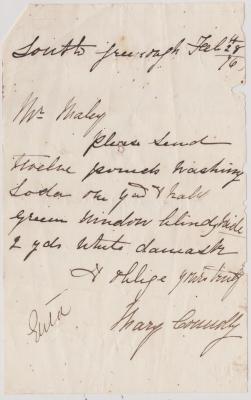 South Greenough Feb 28
/76
Mr Maley
Please send
twelve pounds washing
Soda one yrd & half
green window blind wide
2 yds white damask
& oblige yours truly
Mary Connolly
Entd